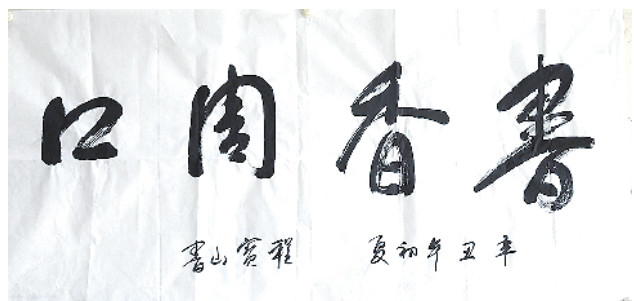 書香周口
辛丑年初夏 程寳山書